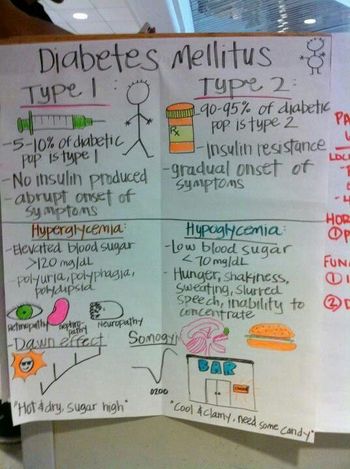 Diabetes Mellitus
Type 1:
- 5-10% of diabetic
pop is type 1
- No insulin produced
- abrupt onset of
symptoms
Type 2:
Rx
- 90-95% of diabetic
pop is type 2
- Insulin resistance
- gradual onset of
symptoms
Hyperglycemia:
- Elevated blood sugar
>120 mg/dL
- polyuria, polyphagia,
polydipsia
Retinopathy
Nephro-
pathy
Neuropathy
- Dawn effect
"Hot & dry, sugar high"
Hypoglycemia:
- Low blood sugar
< 70 mg/dL
- Hunger, shakiness,
sweating, slurred
speech, inability to
concentrate
Somogyi
0200
BAR
"Cool & clamy, need some candy"
PA
HOR
FUN